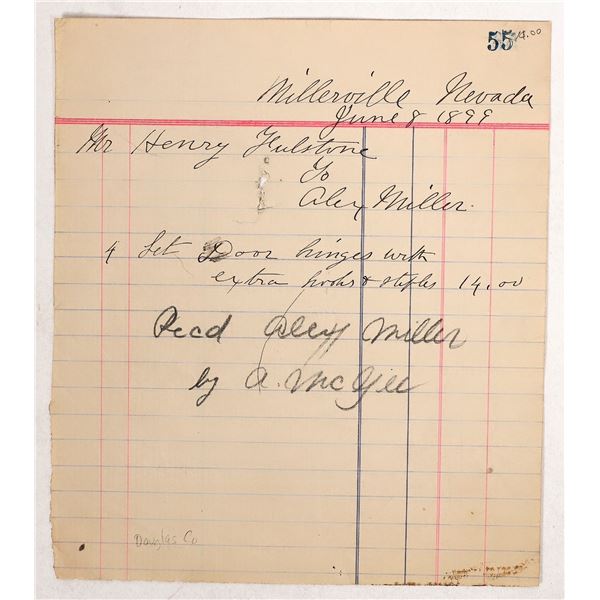 55 14.00
Millerville Nevada
June 8 1899
Mr Henry Fulstone
To
Alex Miller.
4 Set Door hinges with
extra hooks & stiples 14.00
Recd Alex Miller
by A. McGee
Douglas Co